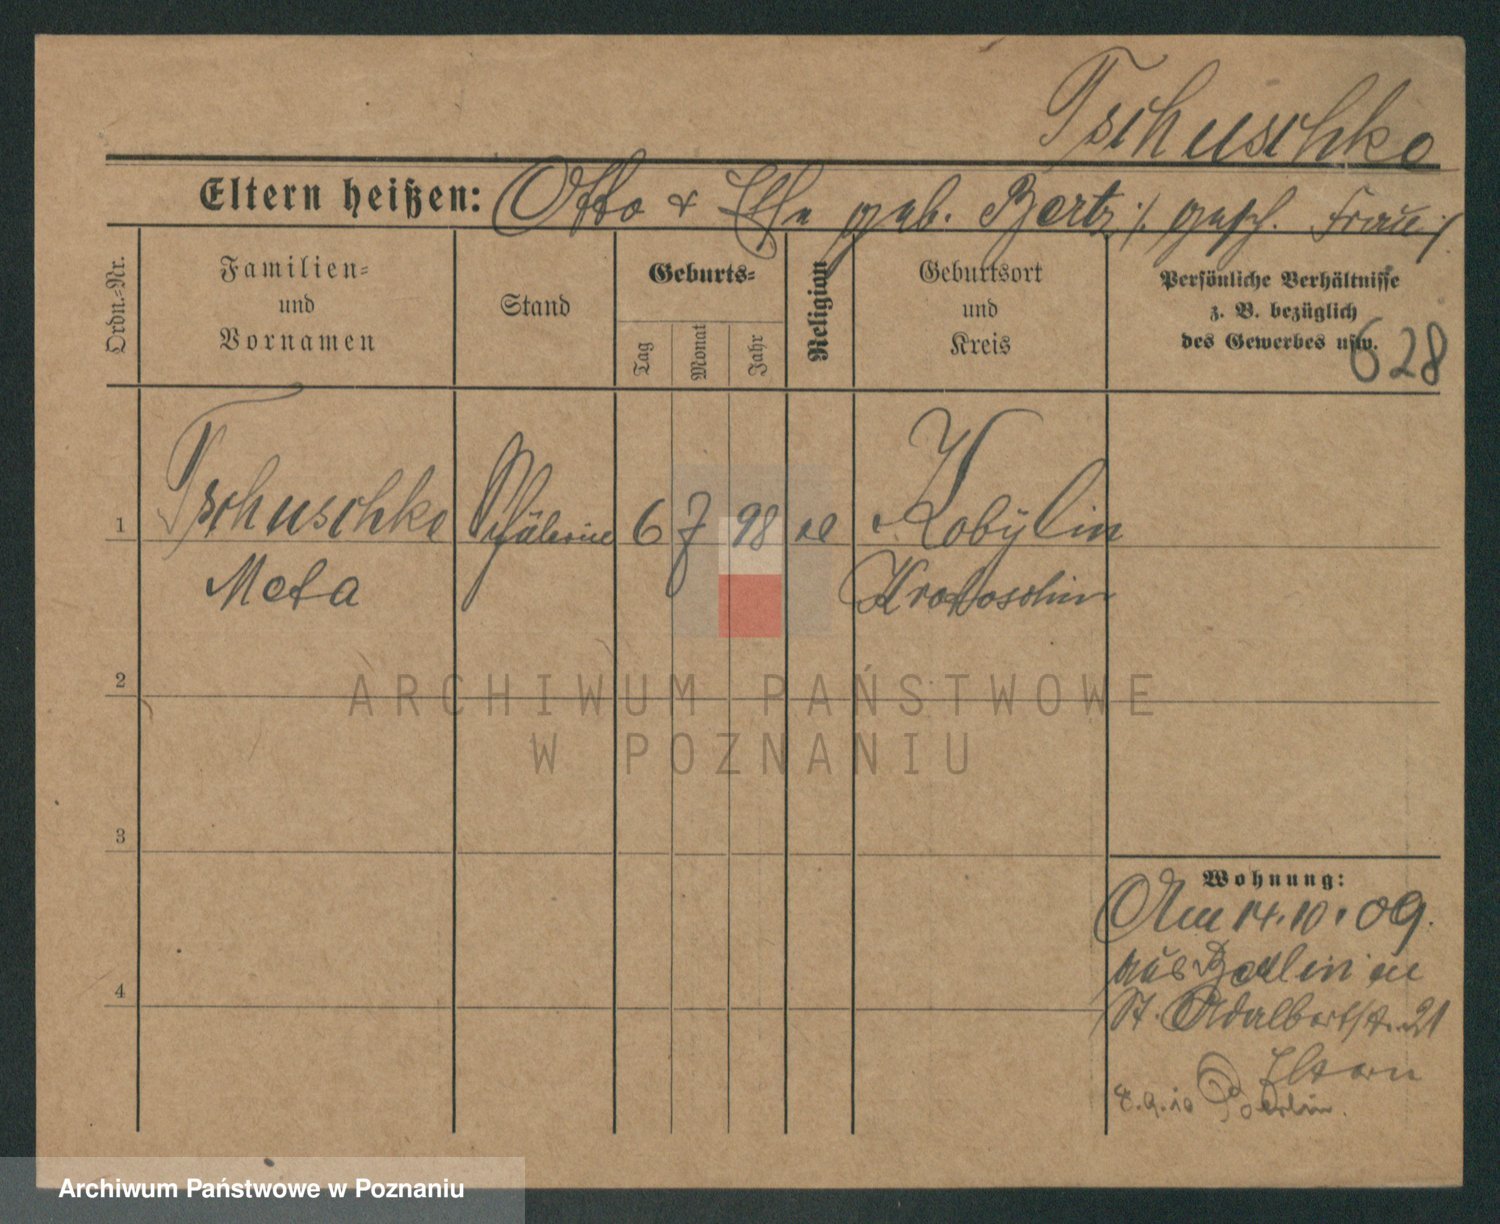 Tschuschke
Eltern heißen: Otto & Else geb. Bertz ./. gesch. Frau ./.
Ordn.=Nr.
Familien=
und
Vornamen
Stand
Geburts=
Tag
Monat
Jahr
Religion
Geburtsort
und
Kreis
Persönliche Verhältnisse
z. B. bezüglich
des Gewerbes usw.
628
1 Tschuschke Schülerin 6 7 98 Kobylin
Meta Krotoschin
2
ARCHIWUM PAŃSTWOWE
W POZNANIU
3
4
Wohnung:
Am 14.10.09.
aus Berlin
St. Adalbertstr. 21
Eltern
8.9.10 Berlin.
Archiwum Państwowe w Poznaniu